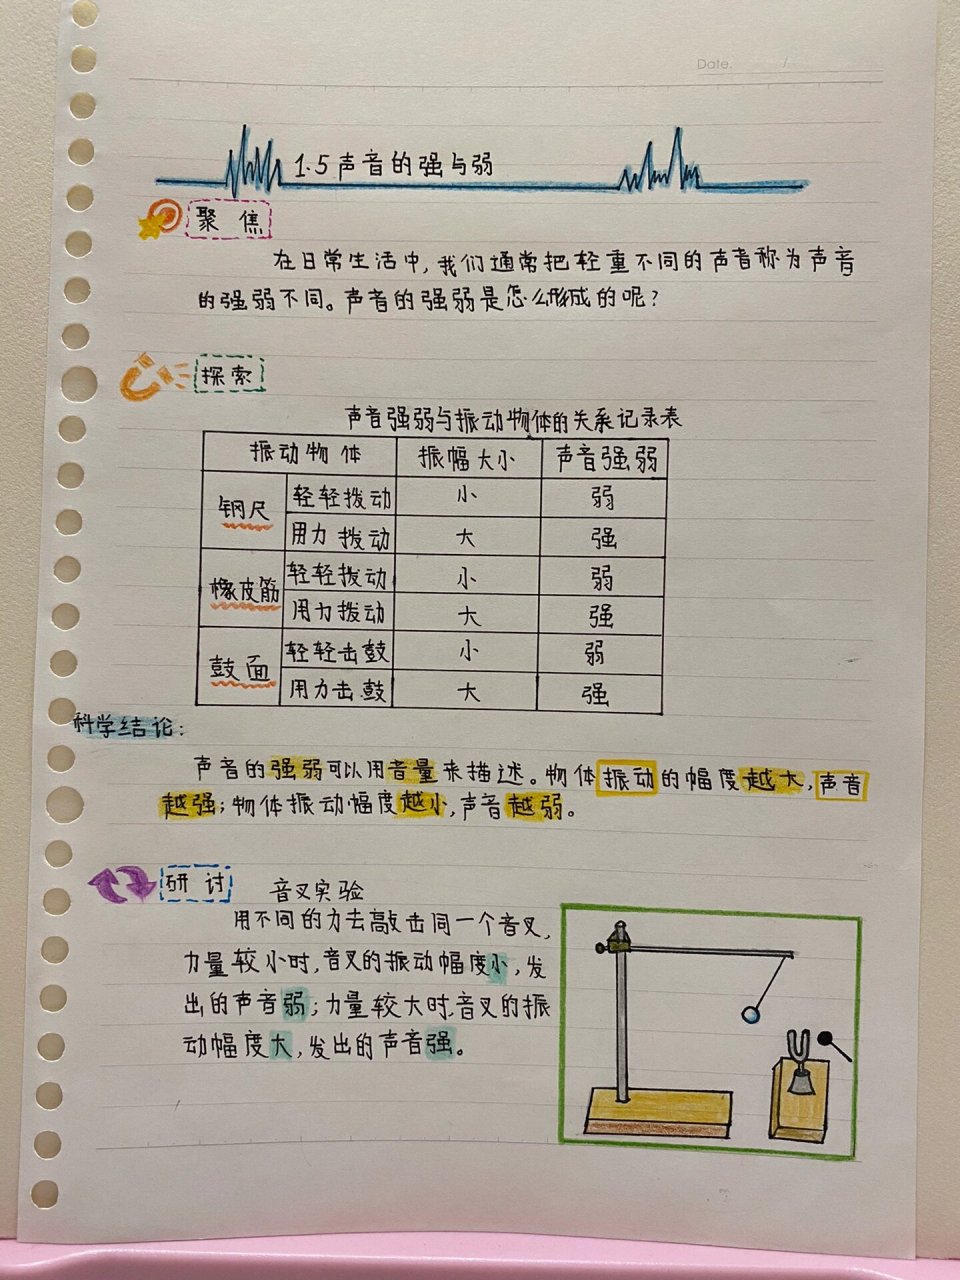 Date. /
1.5声音的强与弱
聚焦
在日常生活中,我们通常把轻重不同的声音称为声音
的强弱不同。声音的强弱是怎么形成的呢?
探索
声音强弱与振动物体的关系记录表
振动物体 振幅大小 声音强弱
钢尺 轻轻拨动 小 弱
用力拨动 大 强
橡皮筋 轻轻拨动 小 弱
用力拨动 大 强
鼓面 轻轻击鼓 小 弱
用力击鼓 大 强
科学结论:
声音的强弱可以用音量来描述。物体振动的幅度越大,声音
越强;物体振动幅度越小,声音越弱。
研讨 音叉实验
用不同的力去敲击同一个音叉,
力量较小时,音叉的振动幅度小,发
出的声音弱;力量较大时,音叉的振
动幅度大,发出的声音强。